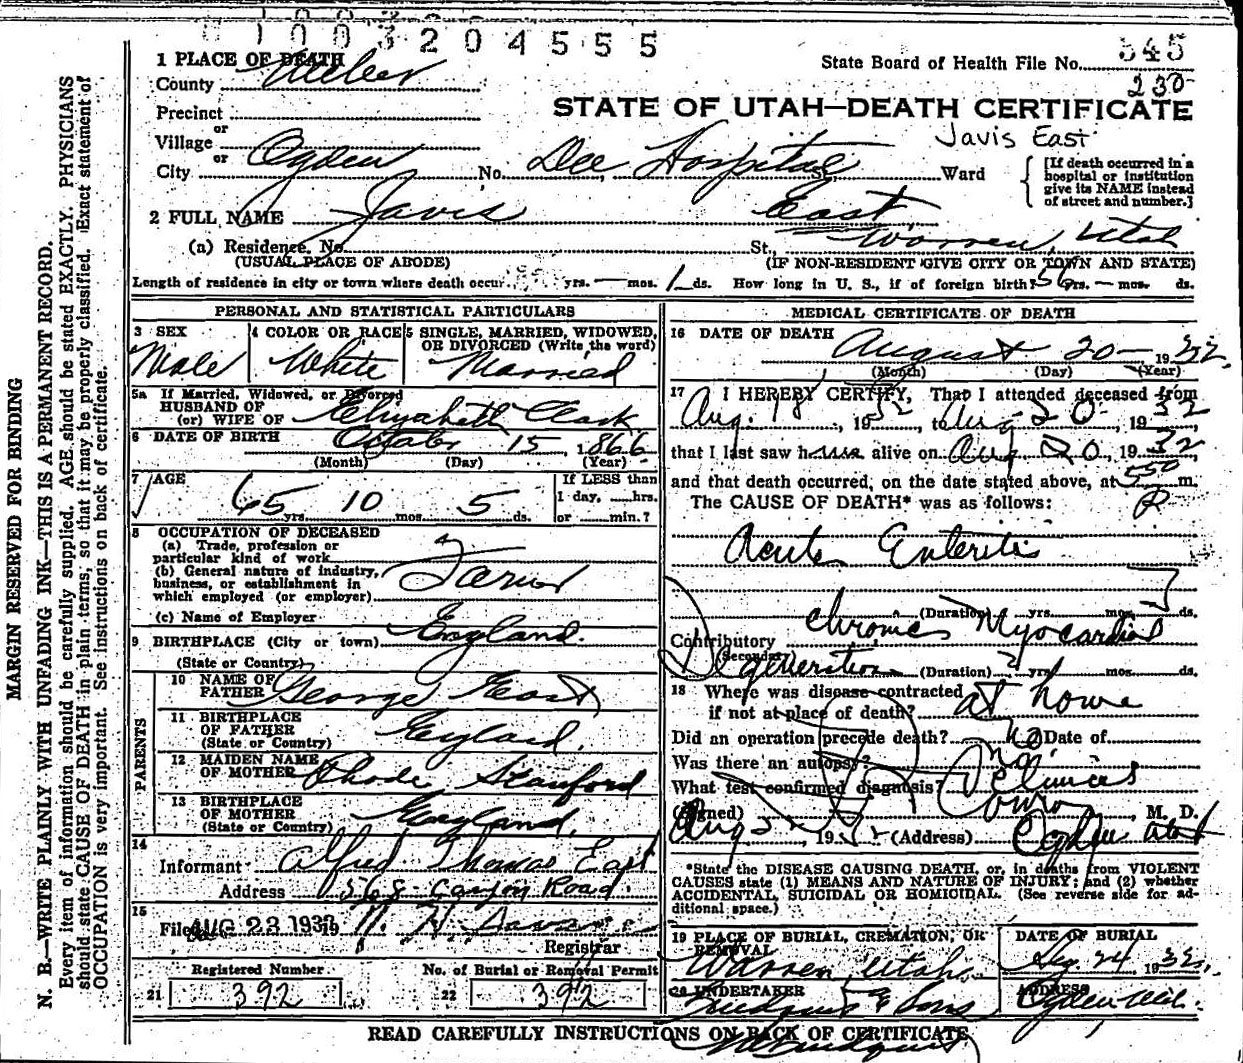 1003204555
1 PLACE OF DEATH
County Weber
State Board of Health File No. 545
230
Precinct
or
STATE OF UTAH—DEATH CERTIFICATE
Village
or
Javis East
City Ogden No. Dee Hospital St. Ward
[If death occurred in a hospital or institution give its NAME instead of street and number.]
2 FULL NAME Javis East
(a) Residence, No. St., Warren, Utah
(USUAL PLACE OF ABODE) (IF NON-RESIDENT GIVE CITY OR TOWN AND STATE)
Length of residence in city or town where death occur. yrs. — mos. 1 ds. How long in U. S., if of foreign birth? 56 yrs. — mos. ds.
PERSONAL AND STATISTICAL PARTICULARS
3 SEX Male
4 COLOR OR RACE White
5 SINGLE, MARRIED, WIDOWED, OR DIVORCED (Write the word) Married
5a If Married, Widowed, or Divorced
HUSBAND OF
(or) WIFE OF Elizabeth
6 DATE OF BIRTH October 15, 1866
(Month) (Day) (Year)
7 AGE 65 yrs. 10 mos. 5 ds.
If LESS than
1 day, hrs.
or min.?
8 OCCUPATION OF DECEASED
(a) Trade, profession or
particular kind of work
(b) General nature of industry,
business, or establishment in
which employed (or employer)
(c) Name of Employer
9 BIRTHPLACE (City or town) England.
(State or Country)
PARENTS
10 NAME OF
FATHER George East
11 BIRTHPLACE
OF FATHER England.
(State or Country)
12 MAIDEN NAME
OF MOTHER Rhode Stanford
13 BIRTHPLACE
OF MOTHER England.
(State or Country)
14
Informant Alfred Thomas East
Address 568 Canyon Road.
15
Filed AUG 23 1932
Registrar
Registered Number No. of Burial or Removal Permit
21 392 22 392
MEDICAL CERTIFICATE OF DEATH
16 DATE OF DEATH August 20— 1932
(Month) (Day) (Year)
17 I HEREBY CERTIFY, That I attended deceased from
Aug. 18, 1932, to Aug 20, 1932,
that I last saw h alive on Aug 20, 1932,
and that death occurred, on the date stated above, at 5 50 m.
The CAUSE OF DEATH* was as follows: P
Acute Enteritis
(Duration) yrs. mos. 7 ds.
Contributory Chronic Myocardial
(Secondary) Degeneration (Duration) 2 yrs. mos. ds.
18 Where was disease contracted
if not at place of death? at home
Did an operation precede death? no Date of
Was there an autopsy? no
What test confirmed diagnosis? Clinical
(Signed) M. D.
Aug, 1932 (Address) Ogden Utah
*State the DISEASE CAUSING DEATH, or, in deaths from VIOLENT
CAUSES state (1) MEANS AND NATURE OF INJURY; and (2) whether
ACCIDENTAL, SUICIDAL OR HOMICIDAL. (See reverse side for ad-
ditional space.)
19 PLACE OF BURIAL, CREMATION, OR REMOVAL
Warren, Utah.
DATE OF BURIAL
24 1932
20 UNDERTAKER & Sons
ADDRESS Ogden Utah.
READ CAREFULLY INSTRUCTIONS ON BACK OF CERTIFICATE
MARGIN RESERVED FOR BINDING
N. B.—WRITE PLAINLY WITH UNFADING INK—THIS IS A PERMANENT RECORD.
Every item of information should be carefully supplied. AGE should be stated EXACTLY. PHYSICIANS
should state CAUSE OF DEATH in plain terms, so that it may be properly classified. Exact statement of
OCCUPATION is very important. See instructions on back of certificate.